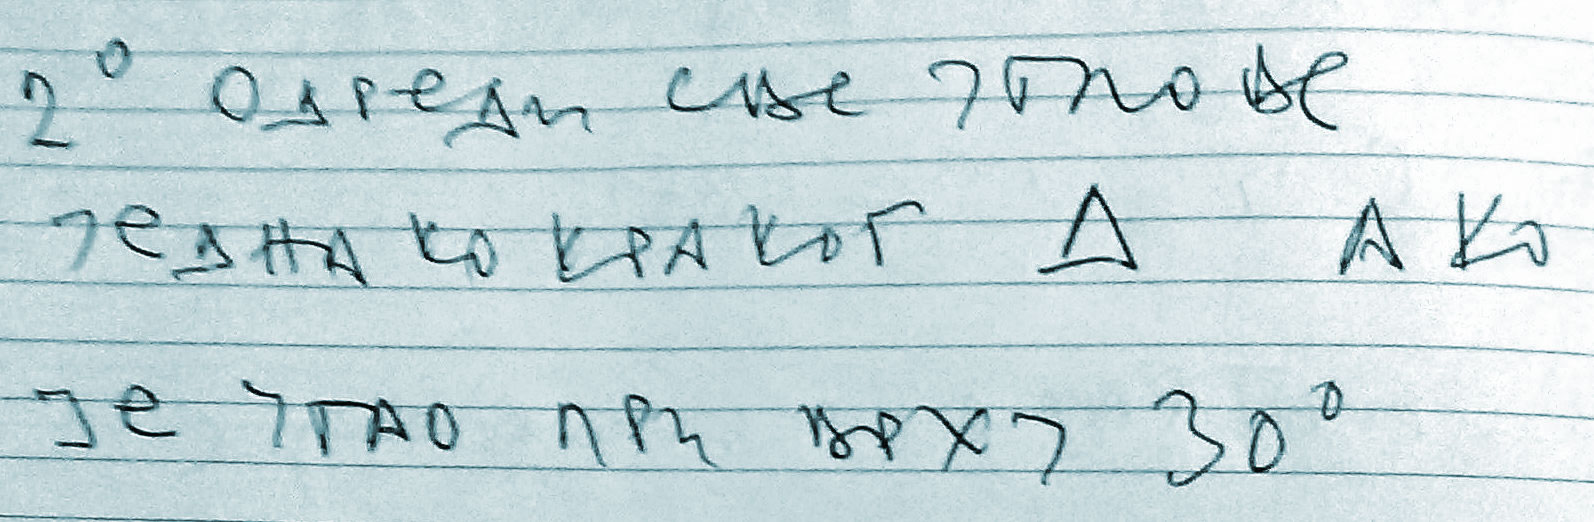 2° Одреди све углове
једнакокраког Δ ако
је угао при врху 30°